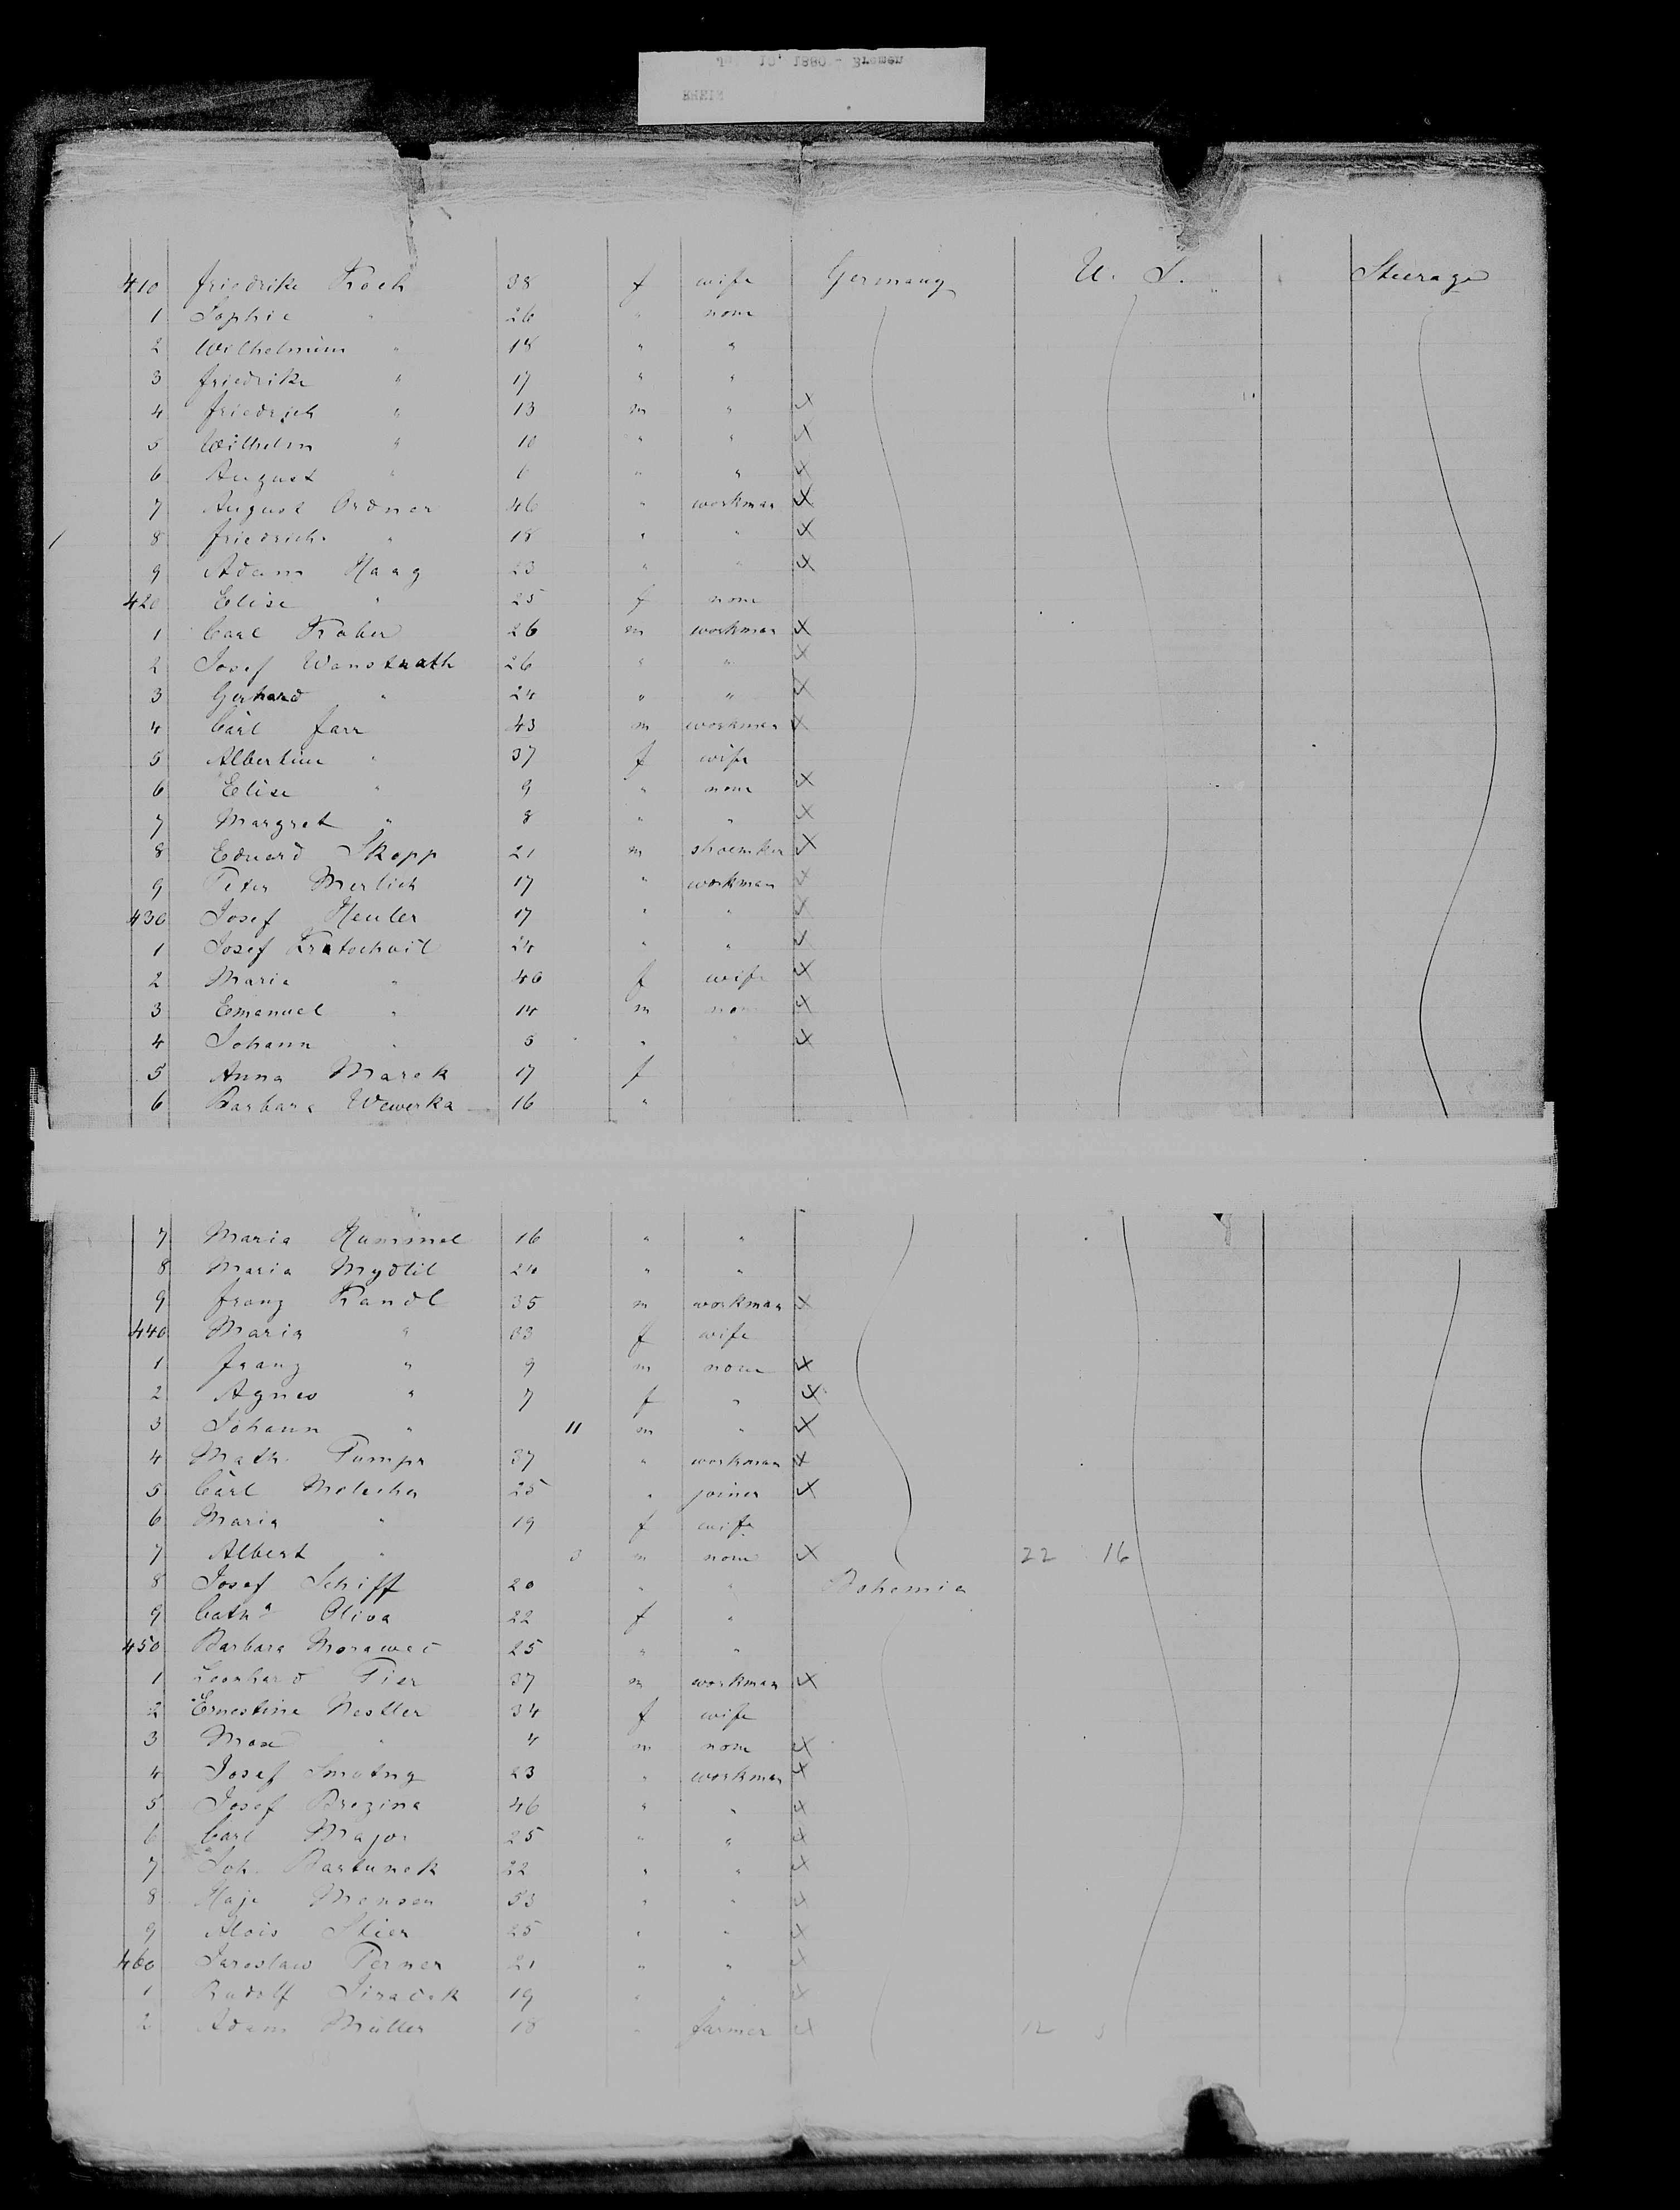 10, 1880 - Bremen
RHEIN
410 Friedrike Koch 38 f wife Germany U. S. Steerage
1 Sophie " 26 " none
2 Wilhelmine " 18 " "
3 Friedrike " 17 " "
4 Friedrich " 13 m " X
5 Wilhelm " 10 " " X
6 August " 6 " " X
7 August Ordner 46 " workman X
8 Friedrich " 18 " " X
9 Adam Haag 23 " " X
420 Elise " 25 f none
1 Carl Kober 26 m workman X
2 Josef Wanstrath 26 " " X
3 Gerhard " 24 " " X
4 Carl Farr 43 m workman X
5 Albertine " 37 f wife
6 Elise " 9 " none X
7 Margret " 8 " " X
8 Eduard Skopp 21 m shoemker X
9 Peter Merlich 17 " workman X
430 Josef Heuler 17 " " X
1 Josef Kratochvil 24 " " X
2 Maria " 46 f wife X
3 Emanuel " 14 m none X
4 Johann " " " X
5 Anna Marek 17 f
6 Barbara Wewerka 16 "
7 Maria Hummel 16 " "
8 Maria Mydlil 20 " "
9 Franz Kandl 35 m workman X
440 Maria " 33 f wife
1 Franz " 9 m none X
2 Agnes " 7 f " X
3 Johann " 11 m " X
4 Math. Pumpr 37 " workman X
5 Carl Molecha 25 " joiner X
6 Maria " 19 f wife
7 Albert " m none X 22 16
8 Josef Schiff 20 " " Bohemia
9 Cathа Oliva 22 f "
450 Barbara Morawec 25 " "
1 Leonhard Pier 37 m workman X
2 Ernestine Nestler 34 f wife
3 Max " 4 m none X
4 Josef Smutny 23 " workman X
5 Josef Brezina 46 " " X
6 Carl Major 25 " " X
7 Joh. Bartunek 22 " " X
8 Haje Monsen 53 " " X
9 Alois Stier 25 " " X
460 Jaroslaw Perner 21 " " X
1 Rudolf Jiracek 19 " " X
2 Adam Müller 18 " farmer X 12